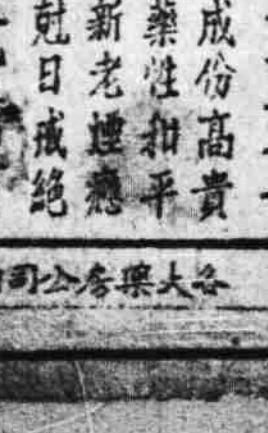 成份高貴
藥性和平
新老煙癮
尅日戒絕
各大藥房公司